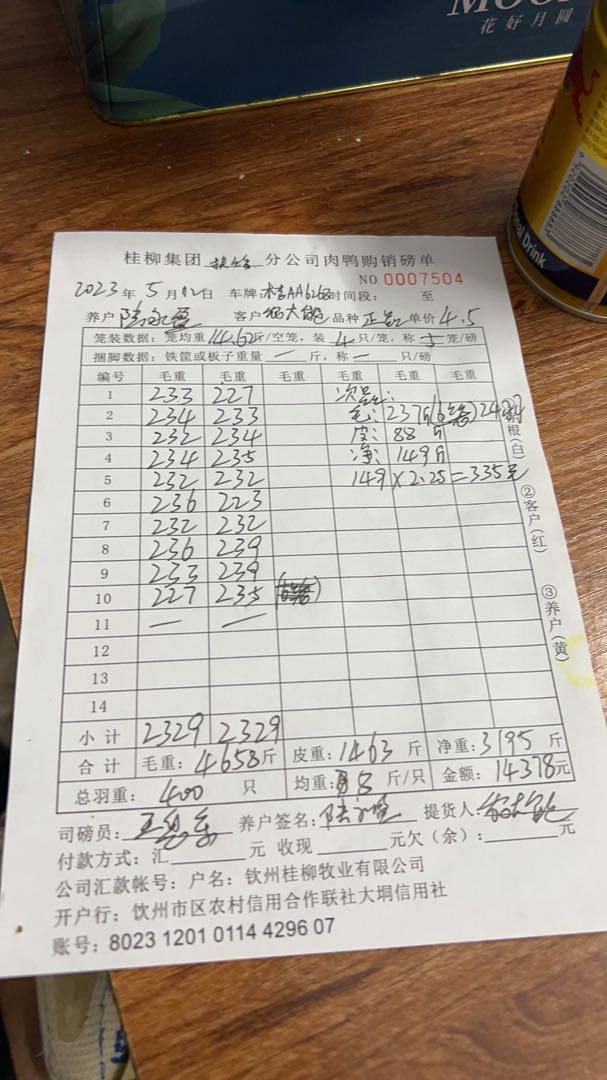 花好月圆
Drink
桂柳集团 分公司肉鸭购销磅单
NO 0007504
2023年 5月12日 车牌:桂AA6268 时间段: 至
养户 客户 品种 正 单价4.5
笼装数据:笼均重14.62斤/空笼,装 4 只/笼,称 5 笼/磅
捆脚数据:铁筐或板子重量 — 斤,称 — 只/磅
编号 毛重 毛重 毛重 毛重 毛重 毛重
1 233 227 次品:
2 234 233 毛:237斤(6笼)
3 232 234 皮:88斤
4 234 235 净:149斤
5 232 232 149×2.25=335元
6 236 223
7 232 232
8 236 239
9 233 239
10 227 235
11 — —
12
13
14
小计 2329 2329
合计 毛重:4658斤 皮重:1463斤 净重:3195斤
总羽重:400 只 均重:8 斤/只 金额:14378元
司磅员: 养户签名: 提货人:
付款方式:汇 元 收现 元欠(余): 元
公司汇款帐号:户名:钦州桂柳牧业有限公司
开户行:饮州市区农村信用合作联社大垌信用社
账号:8023 1201 0114 4296 07
根(白)
②客户(红)
③养户(黄)